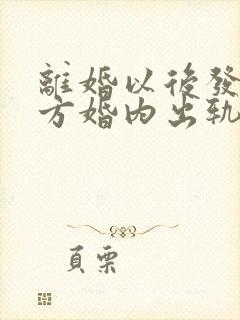 離婚以後發
方婚內出軌
頁栗